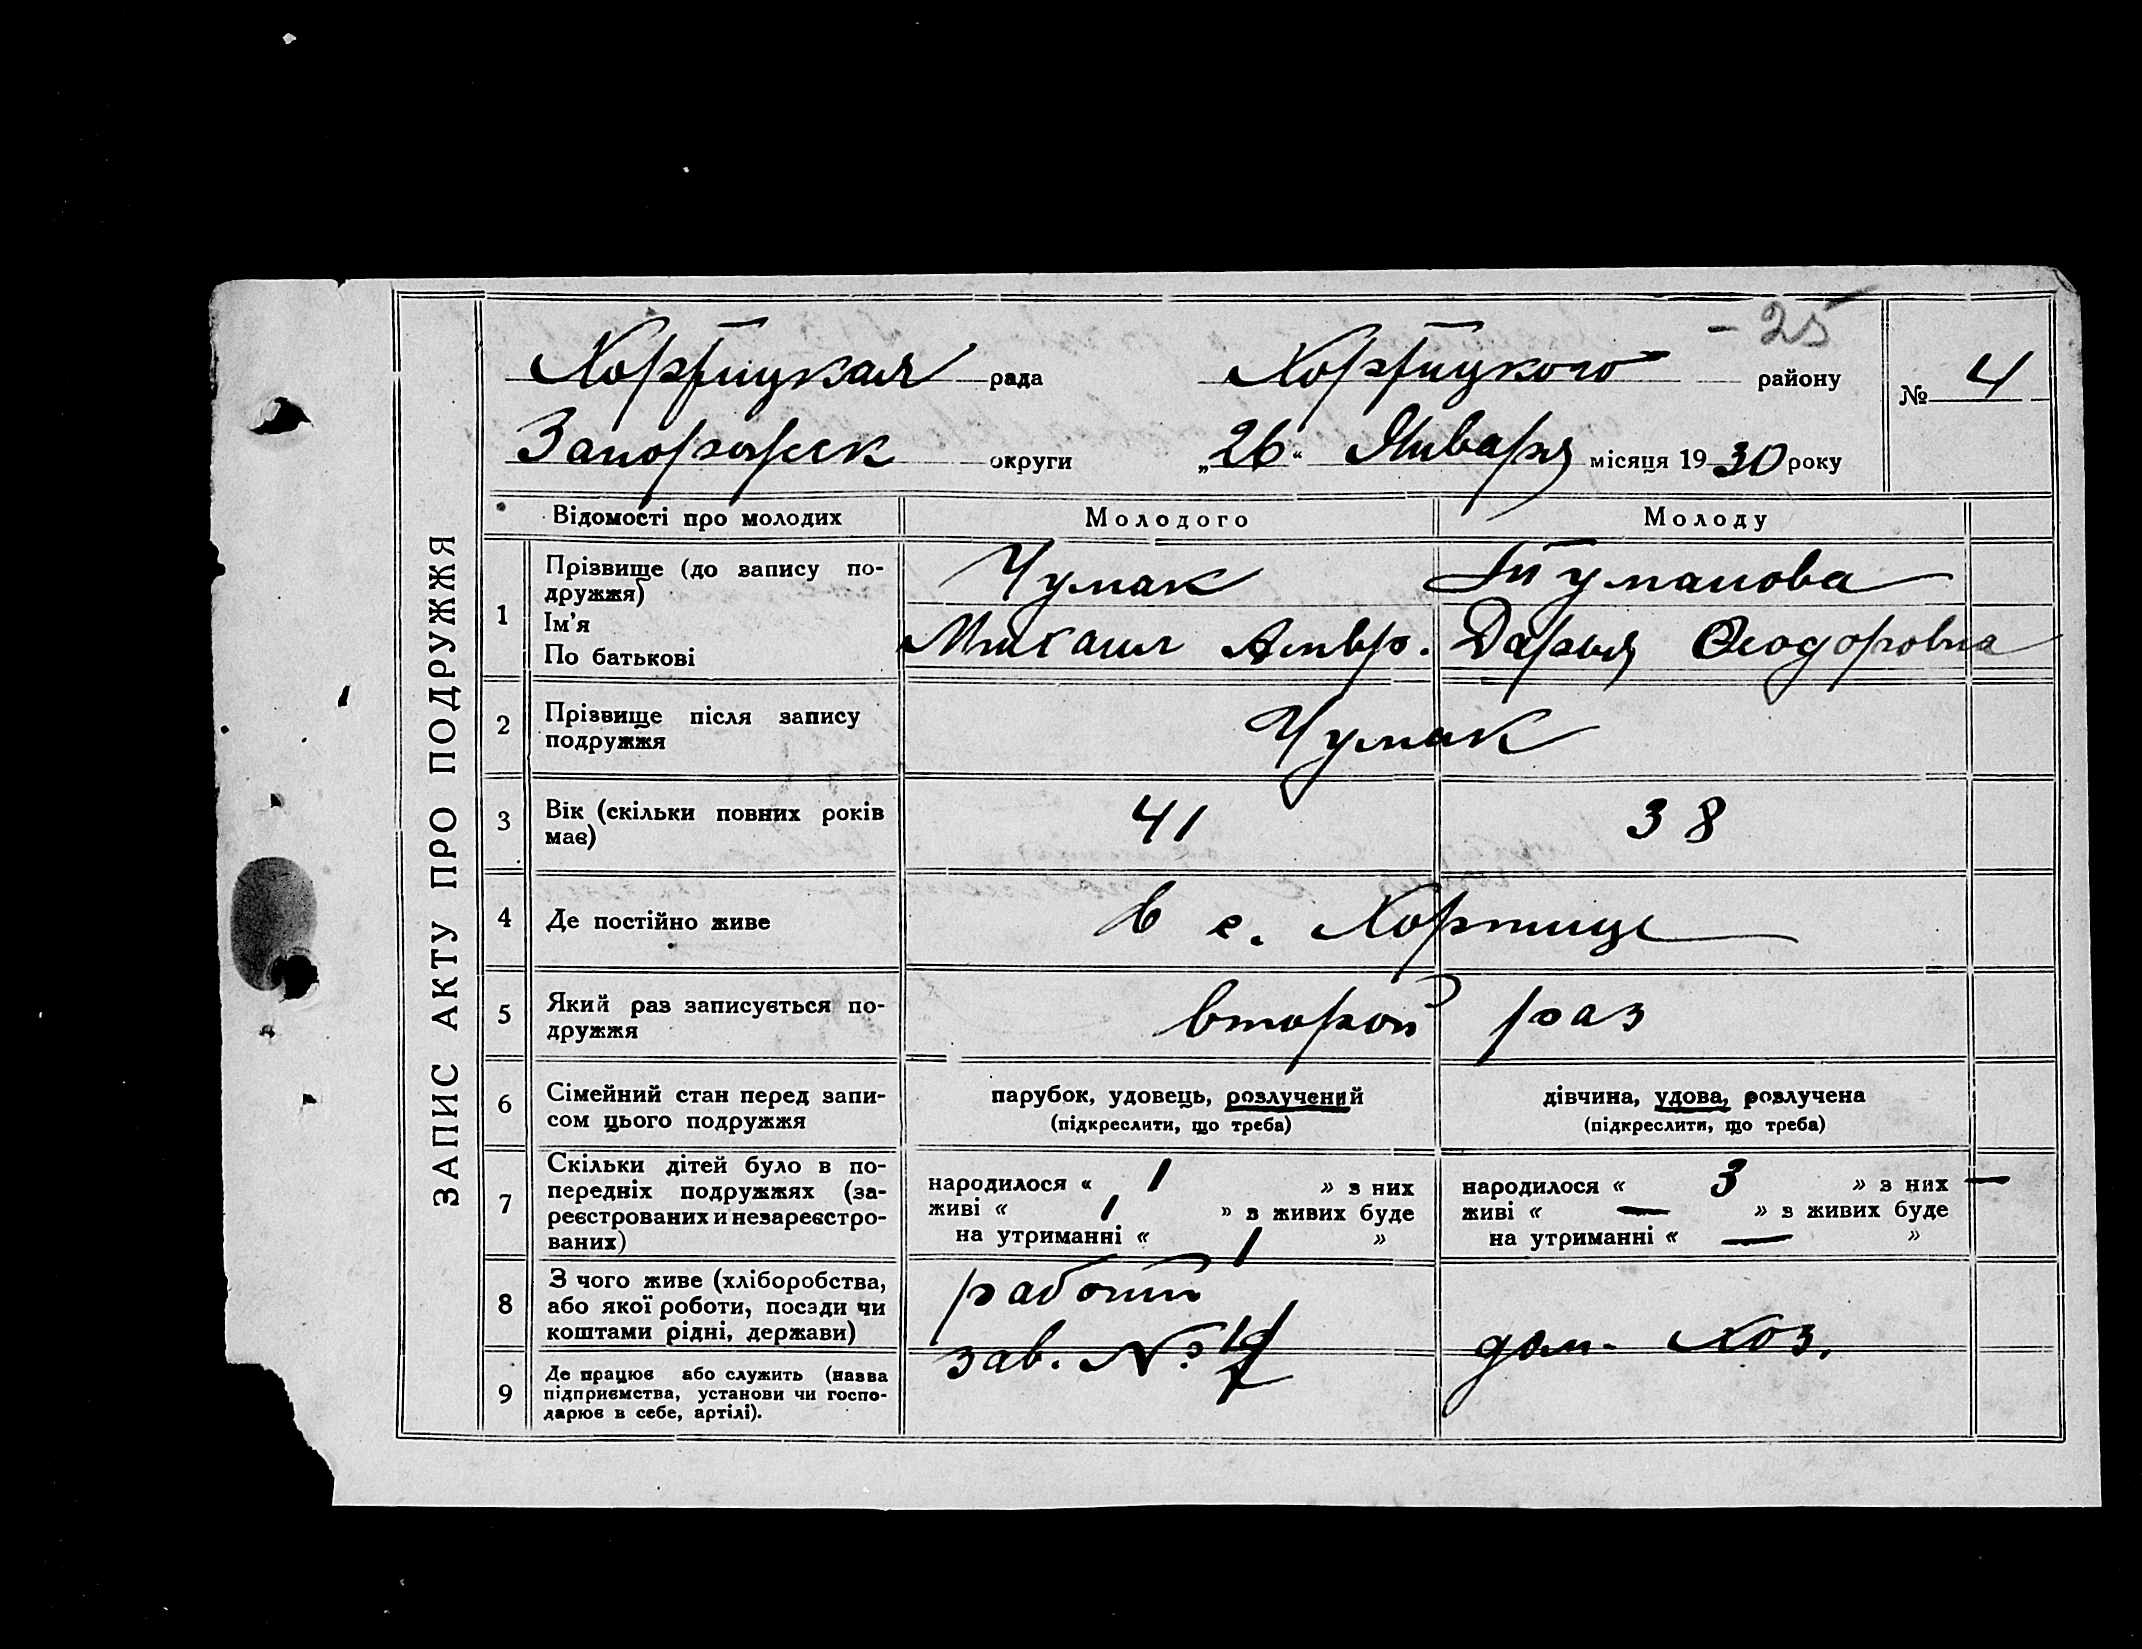 - 25
Хортицкая рада Хортицкого району № 4
Запорожск округи „26“ Января місяця 1930 року
ЗАПИС АКТУ ПРО ПОДРУЖЖЯ
Відомості про молодих Молодого Молоду
1 Прізвище (до запису по-
дружжя) Чумак Туманова
Ім'я
По батькові Михаил Дарья Феодоровна
2 Прізвище після запису
подружжя Чумак
3 Вік (скільки повних років
має) 41 38
4 Де постійно живе в с. Хортице
5 Який раз записується по-
дружжя второй раз
6 Сімейний стан перед запи-
сом цього подружжя парубок, удовець, розлучений дівчина, удова, розлучена
(підкреслити, що треба) (підкреслити, що треба)
7 Скільки дітей було в по-
передніх подружжях (за-
реєстрованих и незареєстро-
ваних)
народилося « 1 » з них народилося « 3 » з них —
живі « 1 » з живих буде живі « — » з живих буде
на утриманні « 1 » на утриманні « — »
8 З чого живе (хліборобства,
або якої роботи, посади чи
коштами рідні, держави) рабочий
зав. № дом. хоз.
9 Де працює або служить (назва
підприємства, установи чи госпо-
дарює в себе, артілі).